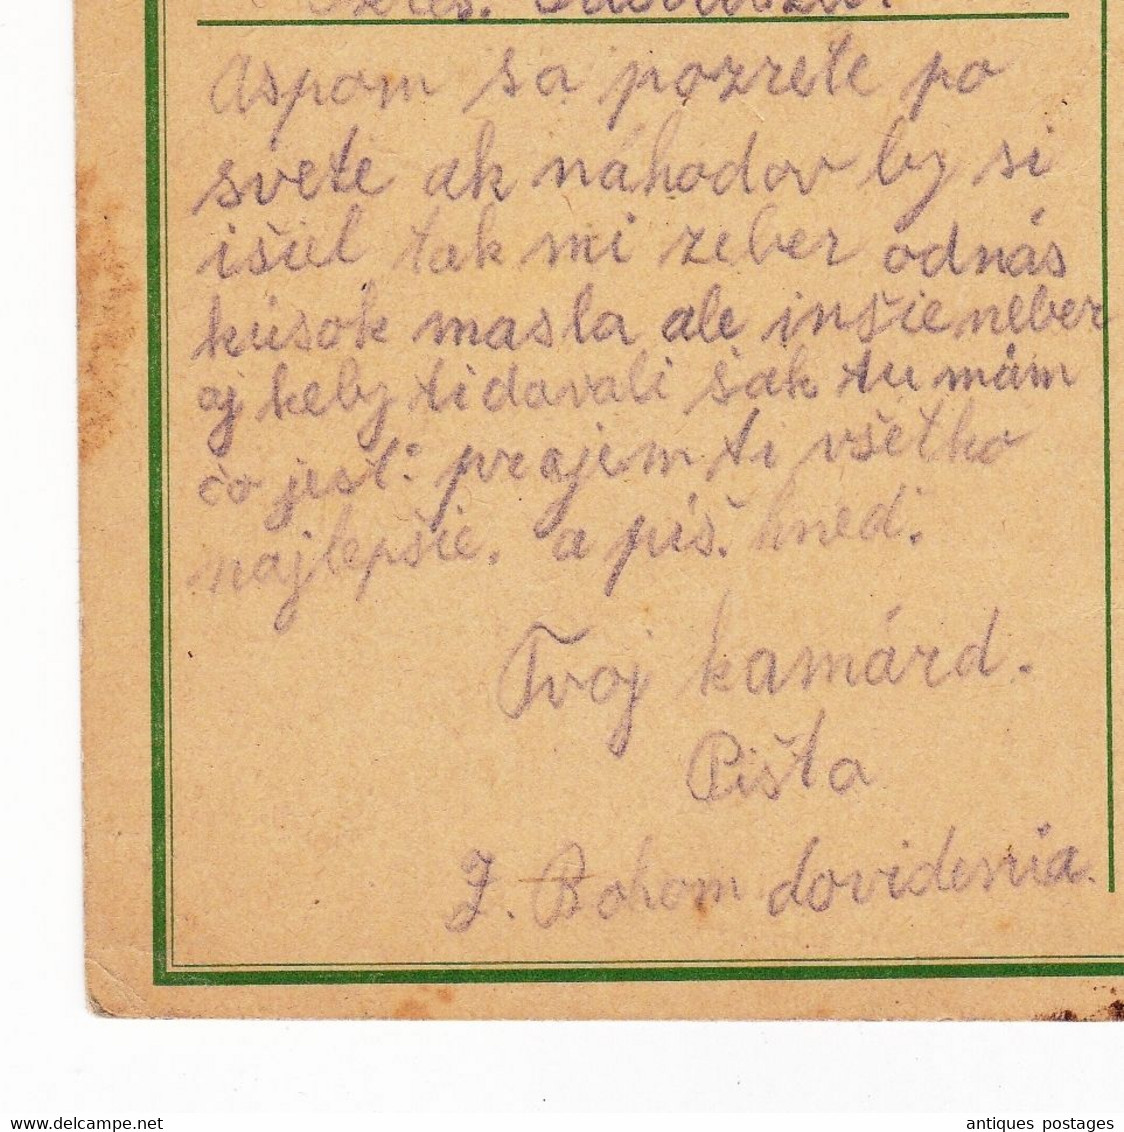 Aspom sa pozrete po
svete ak náhodov by si
išiel tak mi zeber odnás
kúsok masla ale inšie neber
aj keby ti davali šak tu mám
čo jesť: prajem ti všetko
najlepšie. a píš. hneď.
Tvoj kamárd.
Pišta
Z. Bohom dovidenia.
delcampe.net
antiques postages